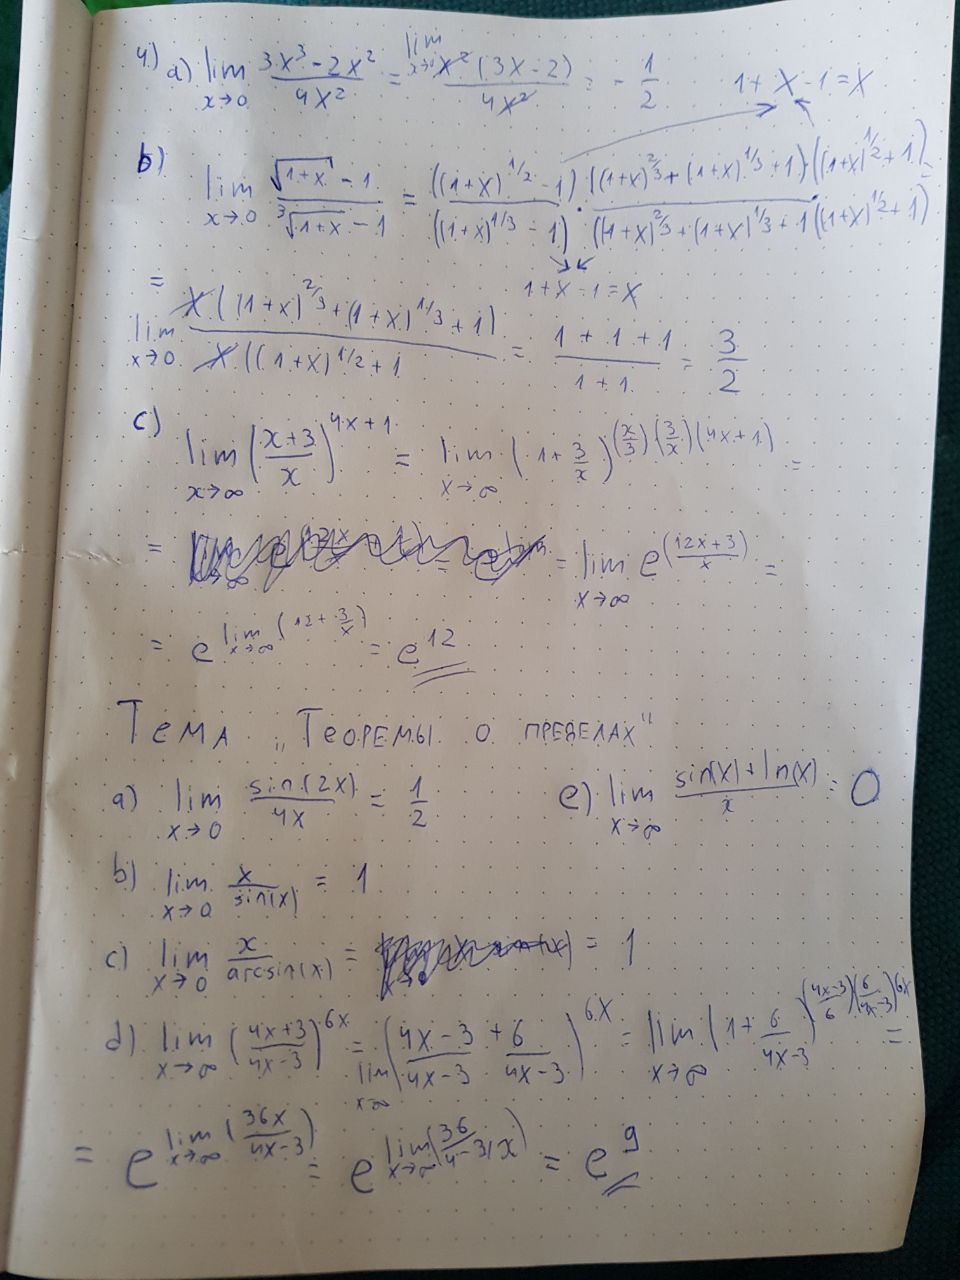 4) a) lim x→0 (3x³ - 2x²)/(4x²) = lim x→0 x²(3x-2)/(4x²) = - 1/2    1 + x - 1 = x
b) lim x→0 (√(1+x) - 1)/(∛(1+x) - 1) = ((1+x)^(1/2) - 1)/((1+x)^(1/3) - 1) · ((1+x)^(2/3) + (1+x)^(1/3) + 1)·((1+x)^(1/2) + 1)/((1+x)^(2/3) + (1+x)^(1/3) + 1((1+x)^(1/2) + 1) =
1+x-1=x
= lim x→0 x((1+x)^(2/3) + (1+x)^(1/3) + 1)/x((1+x)^(1/2) + 1 = (1 + 1 + 1)/(1 + 1) = 3/2
c) lim x→∞ ((x+3)/x)^(4x+1) = lim x→∞ (1 + 3/x)^((x/3)(3/x)(4x+1)) =
= = lim x→∞ e^((12x+3)/x) =
= e^(lim x→∞ (12 + 3/x)) = e^12
Тема „Теоремы о пределах"
a) lim x→0 sin(2x)/4x = 1/2    e) lim x→∞ (sin(x) + ln(x))/x = 0
b) lim x→0 x/sin(x) = 1
c) lim x→0 x/arcsin(x) = = 1
d) lim x→∞ ((4x+3)/(4x-3))^(6x) = lim x→∞ ((4x-3)/(4x-3) + 6/(4x-3))^(6x) = lim x→∞ (1 + 6/(4x-3))^(((4x-3)/6)(6/(4x-3))6x) =
= e^(lim x→∞ (36x/(4x-3))) = e^(lim x→∞ (36/(4-3/x)) = e^9